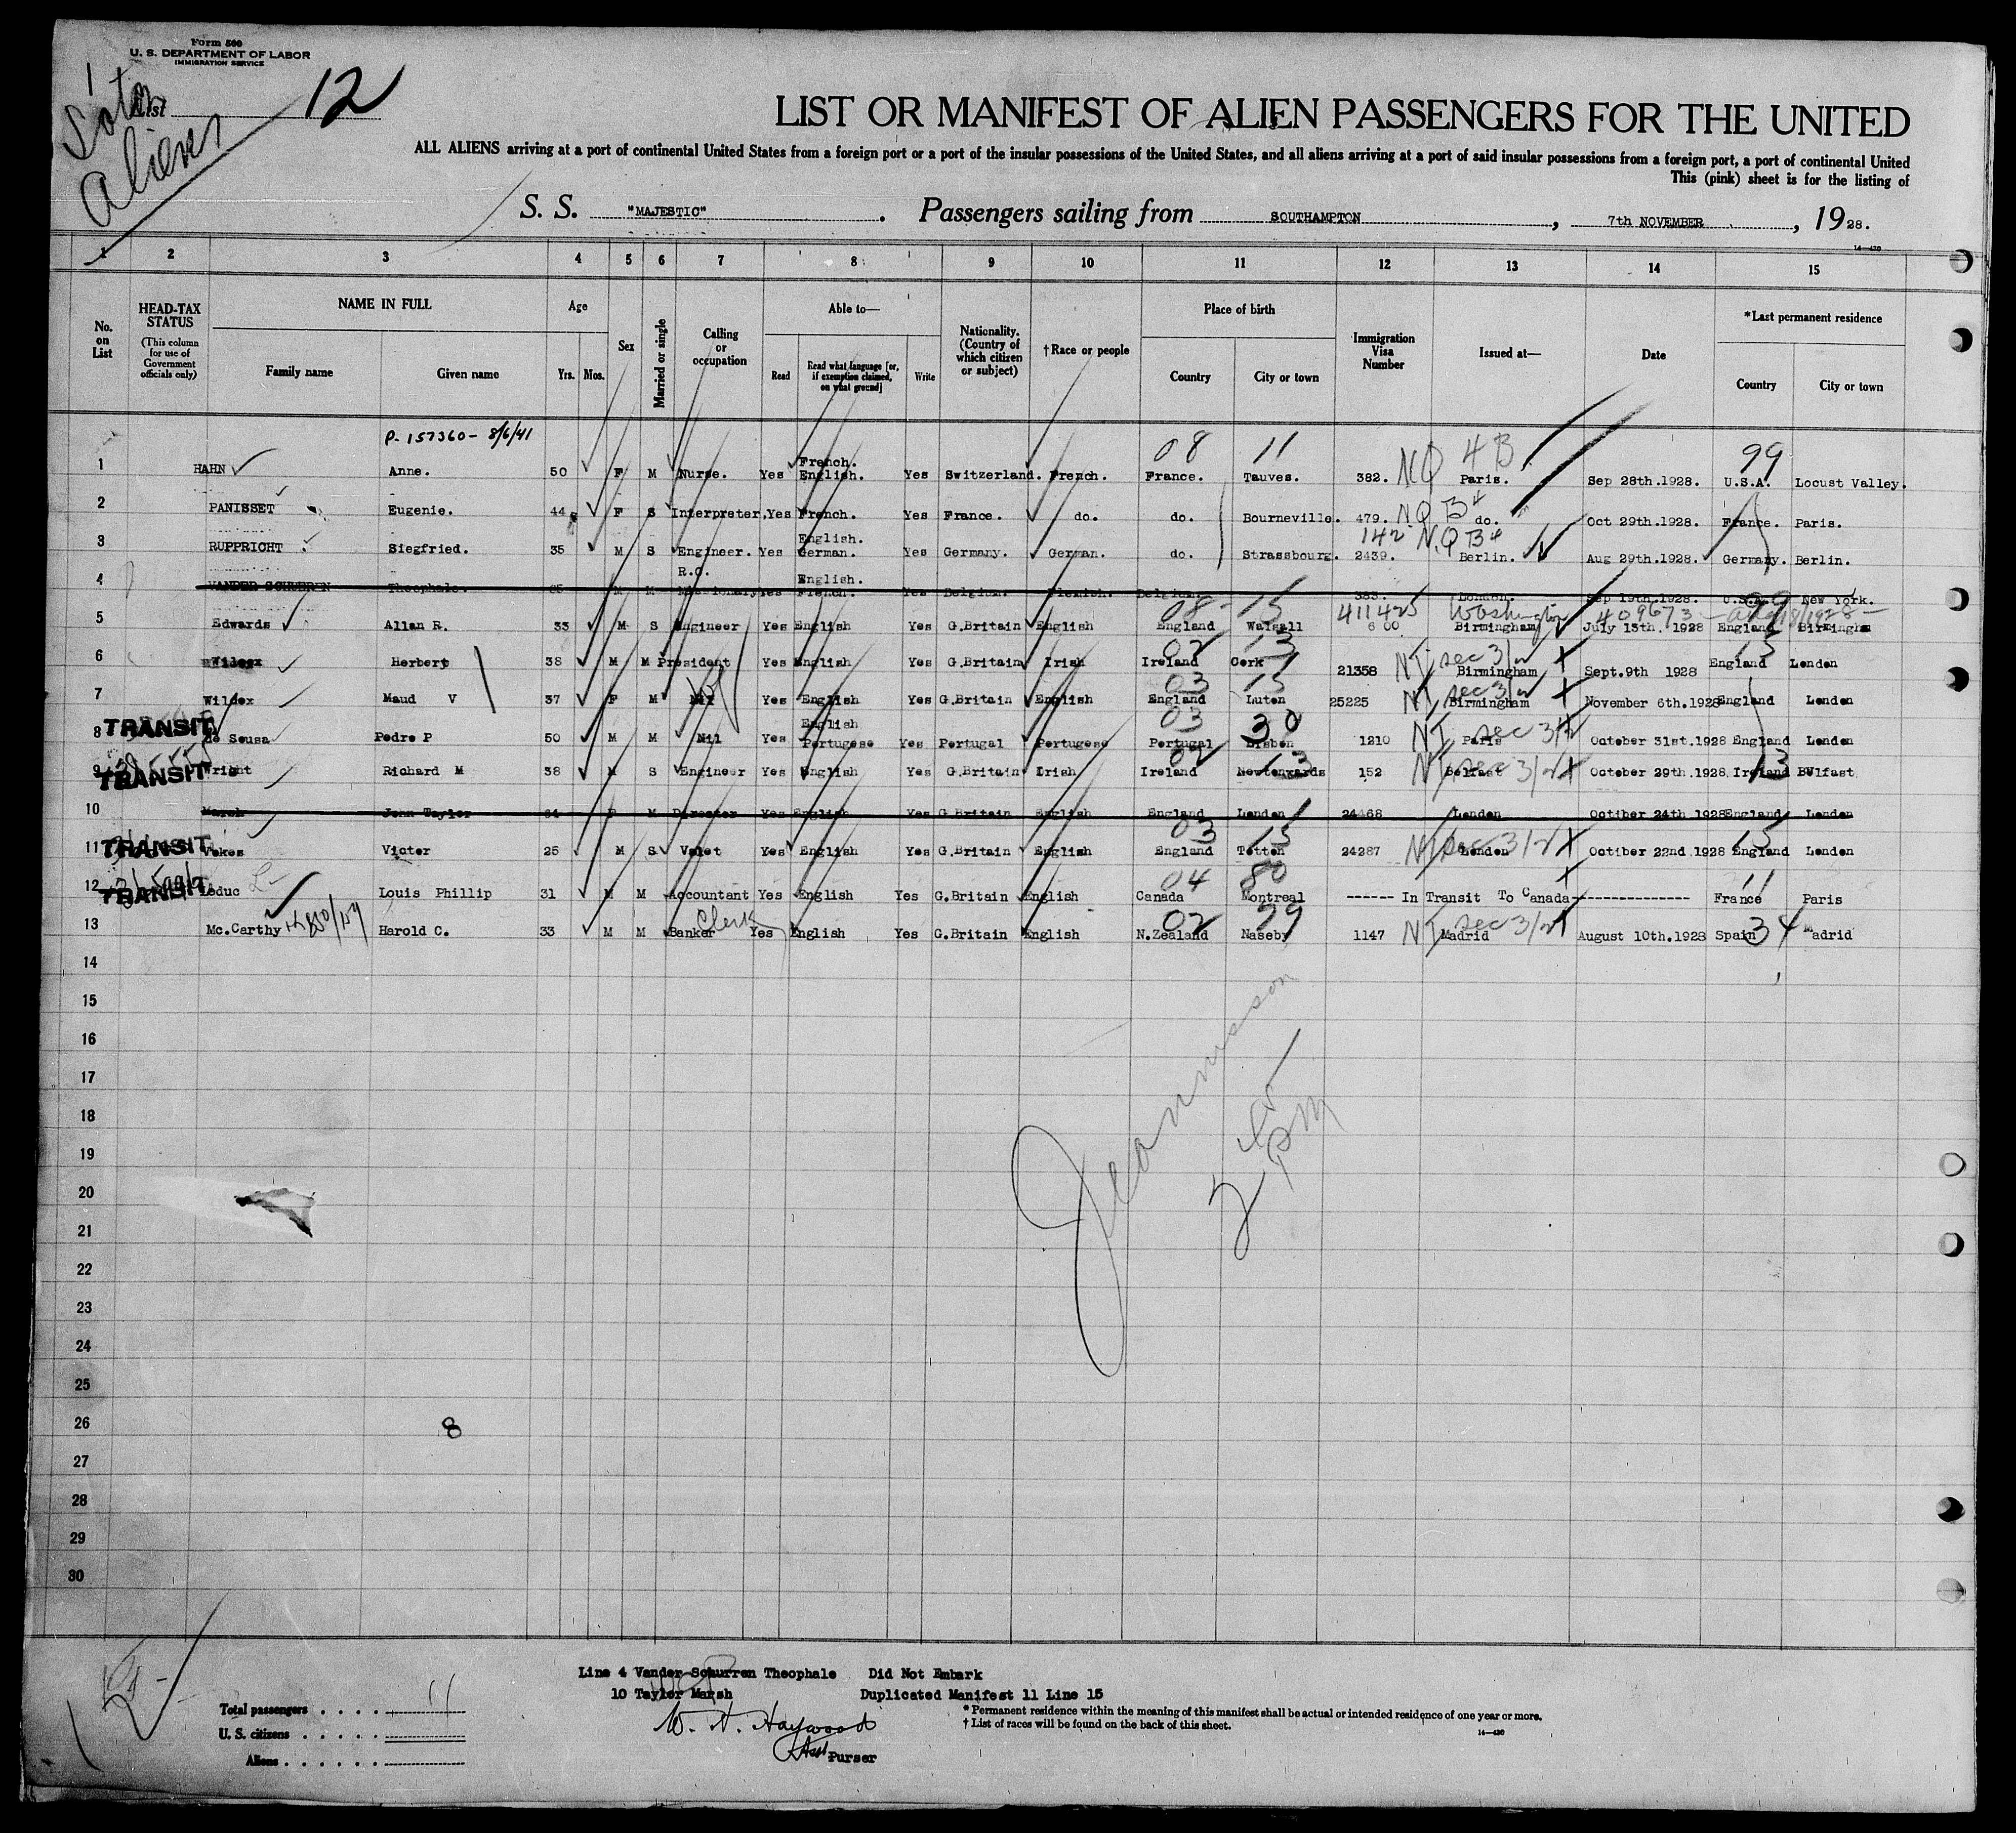 Form 500
U. S. DEPARTMENT OF LABOR
IMMIGRATION SERVICE
List 12
Aliens
LIST OR MANIFEST OF ALIEN PASSENGERS FOR THE UNITED
ALL ALIENS arriving at a port of continental United States from a foreign port or a port of the insular possessions of the United States, and all aliens arriving at a port of said insular possessions from a foreign port, a port of continental United
This (pink) sheet is for the listing of
S. S. "MAJESTIC" . Passengers sailing from SOUTHAMPTON , 7th NOVEMBER , 1928.
14—420
1 2 3 4 5 6 7 8 9 10 11 12 13 14 15
No. on List HEAD-TAX STATUS (This column for use of Government officials only) NAME IN FULL Family name Given name Age Yrs. Mos. Sex Married or single Calling or occupation Able to— Read Read what language [or, if exemption claimed, on what ground] Write Nationality. (Country of which citizen or subject) †Race or people Place of birth Country City or town Immigration Visa Number Issued at— Date *Last permanent residence Country City or town
P- 157360 - 8/6/41
08 11 NQ 4B 99
1 HAHN Anne. 50 F M Nurse. Yes French. English. Yes Switzerland. French. France. Tauves. 382. Paris. Sep 28th.1928. U.S.A. Locust Valley.
2 PANISSET Eugenie. 44 F S Interpreter, Yes French. Yes France. do. do. Bourneville. 479. NQ B4 do. Oct 29th.1928. France. Paris.
3 RUPPRICHT Siegfried. 35 M S Engineer. Yes English. German. Yes Germany. German. do. Strassbourg. 142 2439. NQ B4 Berlin. Aug 29th.1928. Germany. Berlin.
4 Theophale. M M R.C. Missionary Yes English. French. Yes Belgium. Flemish. Belgium. 383. London. Sep 19th.1928. U.S.A. New York.
08 15 411425 Washington 409673
5 Edwards Allan R. 33 M S Engineer Yes English Yes G.Britain English England Walsall 600 Birmingham July 13th. 1928 England Birmingham
6 Wilcox Herbert 38 M M President Yes English Yes G.Britain Irish Ireland Cork 21358 NI sec 3/2 Birmingham Sept.9th 1928 England London
7 Wilcox Maud V 37 F M Nil Yes English Yes G.Britain English England Luton 25225 NI sec 3/2 Birmingham November 6th.1928 England London
TRANSIT
8 de Sousa Pedro P 50 M M Nil Yes English Portugese Yes Portugal Portugese Portugal Lisbon 1210 NI sec 3/2 Paris October 31st.1928 England London
TRANSIT
9 Wright Richard M 38 M S Engineer Yes English Yes G.Britain Irish Ireland Newtonwards 152 NI sec 3/2 Belfast October 29th.1928 Ireland Belfast
10 Marsh John Taylor M Director Yes English Yes G Britain English England London 24468 London October 24th 1928 England London
TRANSIT
11 Vokes Victor 25 M S Valet Yes English Yes G.Britain English England Totton 24287 NI sec 3/2 London October 22nd 1928 England London
TRANSIT
12 Leduc Louis Phillip 31 M M Accountant Yes English Yes G.Britain English Canada Montreal ------ In Transit To Canada -------------- France Paris
Clerk
13 Mc.Carthy Harold C. 33 M M Banker Yes English Yes G.Britain English N.Zealand Naseby 1147 NI sec 3/2 Madrid August 10th.1928 Spain Madrid
14
15
16
17
18
19
20
21
22
23
24
25
26 8
27
28
29
30
Line 4 Vander Schurren Theophale Did Not Embark
10 Taylor Marsh Duplicated Manifest 11 Line 15
Total passengers . . . . 11
U. S. citizens . . . . .
Aliens . . . . . .
W. H. Haywood
Asst Purser
* Permanent residence within the meaning of this manifest shall be actual or intended residence of one year or more.
† List of races will be found on the back of this sheet.
14—420